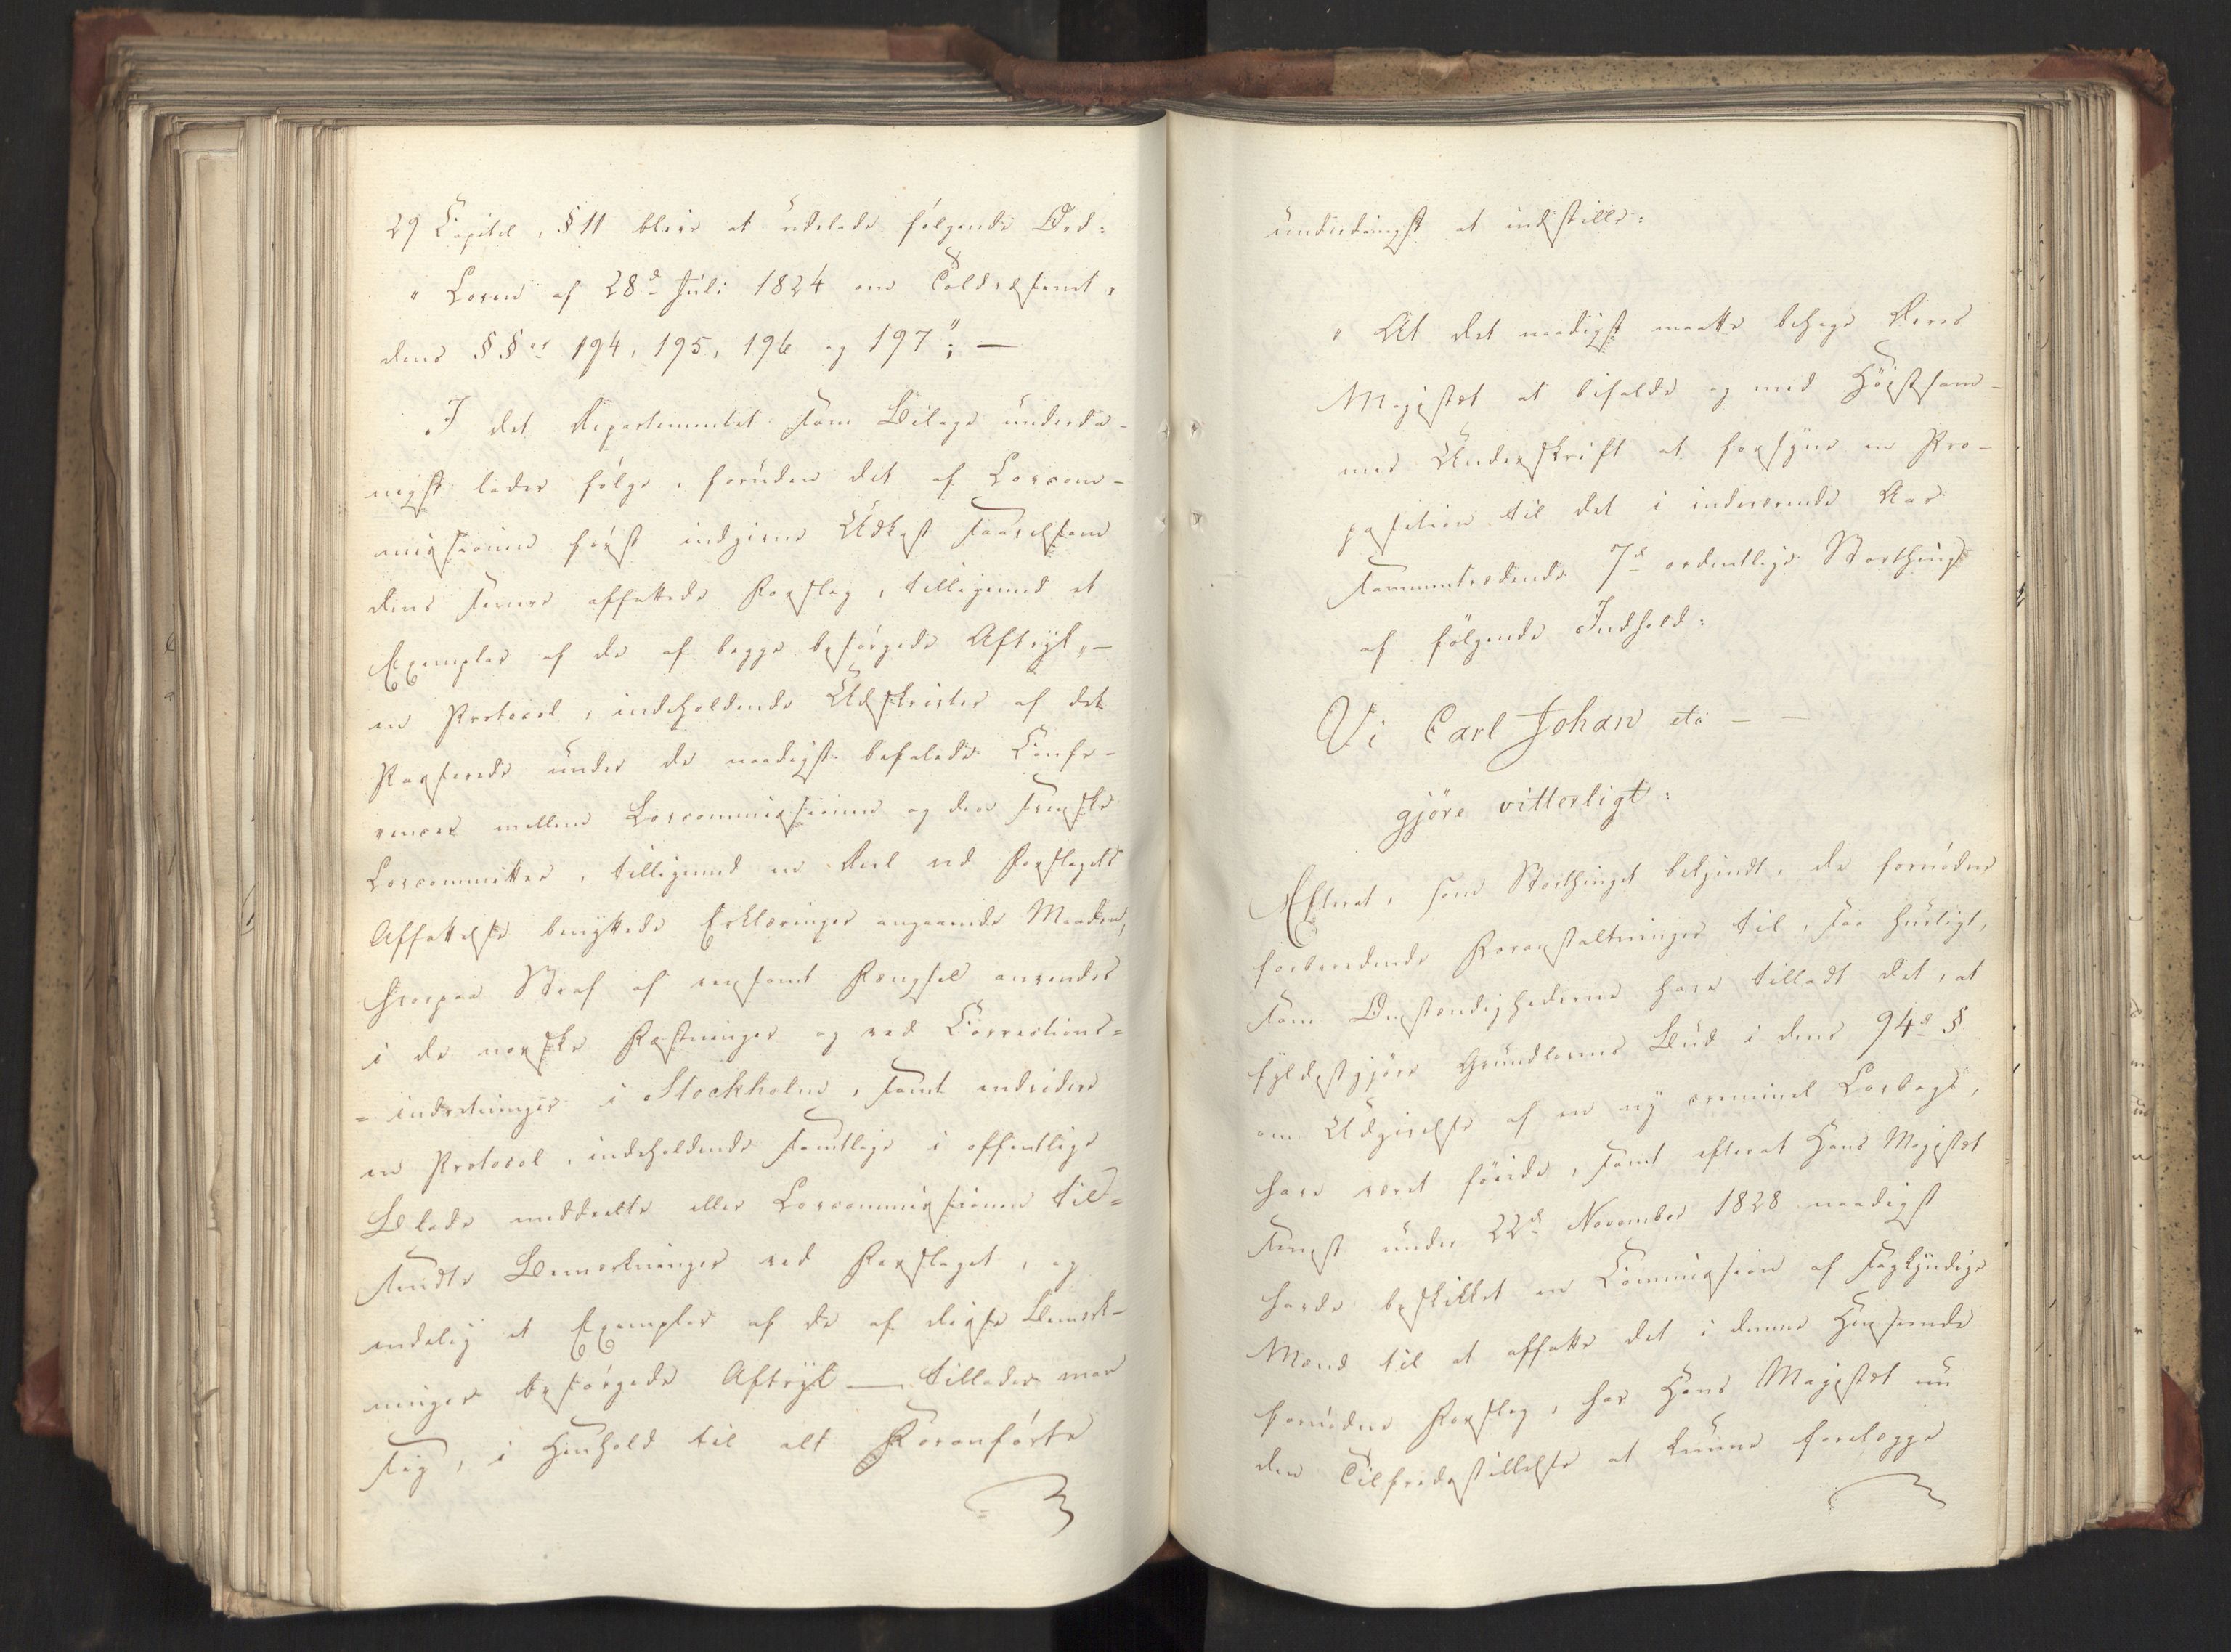 29 Capitel, § 11 bliver at udelade følgende Ord:
"Loven af 28d Juli 1824 om Toldvæsenet,
dens §§er 194, 195, 196 og 197"; —
I det Departementet som Bilage underda-
nigst lader følge, foruden det af Lovcom-
missionen først indgivne Udkast saavelsom
dens senere affattede Forslag, tilligemed et
Exemplar af de af begge besørgede Aftryk, —
en Protocol, indeholdende Udskrivter af det
Passerede under de naadigst befalede Confe-
rencer mellem Lovcommissionen og den svenske
Lovcommittee, tilligemed en Deel ved Forslagets
Affattelse benyttede Erklæringer angaaende Maaden,
hvorpaa Straf af eensomt Fængsel anvendes
i de norske Fæstninger og ved Corrections-
-indretninger i Stockholm, samt endvidere
en Protocol, indeholdende samtlige i offentlige
Blade meddeelte eller Lovcommissionen til-
sendte Bemærkninger ved Forslaget, og
endelig et Exemplar af de af disse Bemærk-
ninger besørgede Aftryk — tillader man
sig, i Henhold til alt Foranførte
underdanigst at indstille:
"At det naadigst maatte behage Deres
Majestæt at bifalde og med Høistsam-
mes Underskrift at forsyne en Pro-
position til det i indeværende Aar
sammentrædende 7d ordentlige Storthing
af følgende Indhold:
Vi Carl Johan etc — —
gjøre vitterligt:
Efterat, som Storthinget bekjendt, de fornødne
forberedende Foranstaltninger til, saa hurtigt,
som Omstændighederne have tilladt det, at
fyldestgjøre Grundlovens Bud i dens 94d §
om Udgivelse af en ny criminel Lovbog,
have været føiede, samt efterat Hans Majestæt
senest under 22d November 1828 naadigst
havde beskikket en Commission af sagkyndige
Mænd til at affatte det i denne Henseende
fornødne Forslag, har Hans Majestæt nu
den Tilfredsstillelse at kunne forelægge